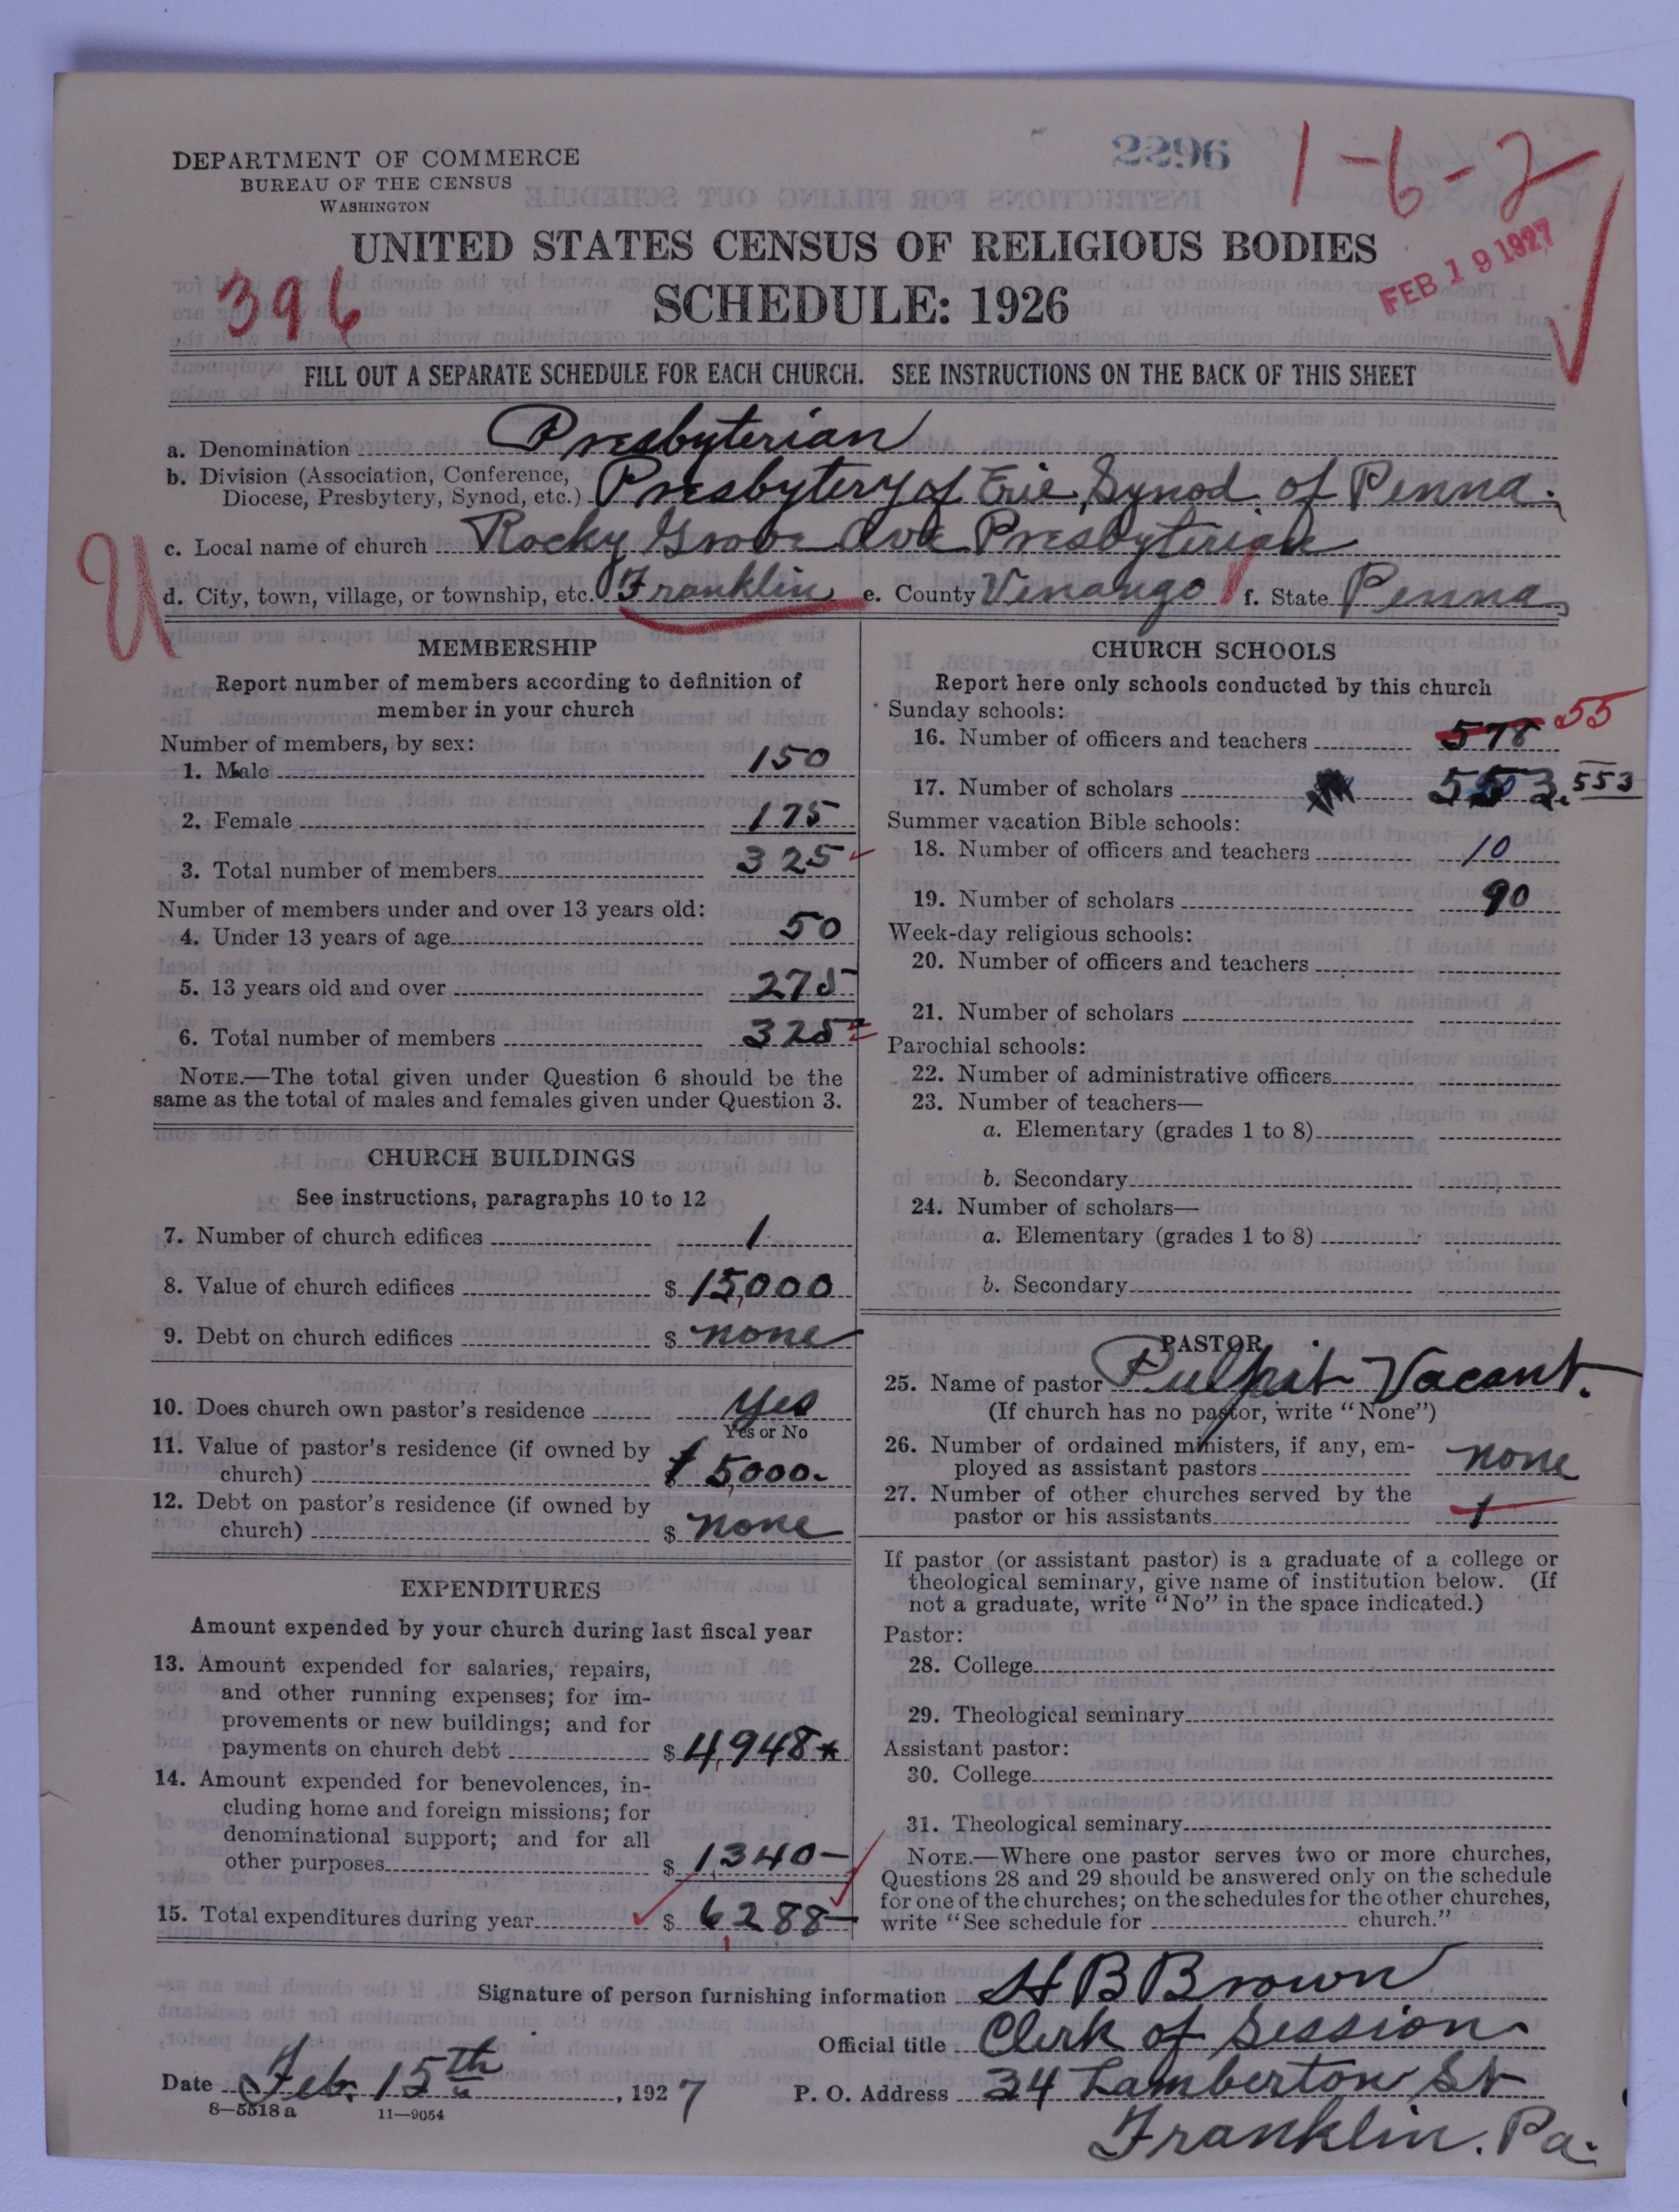 2296
1-6-2
DEPARTMENT OF COMMERCE
BUREAU OF THE CENSUS
WASHINGTON
UNITED STATES CENSUS OF RELIGIOUS BODIES
FEB 19 1927
396
SCHEDULE: 1926
FILL OUT A SEPARATE SCHEDULE FOR EACH CHURCH. SEE INSTRUCTIONS ON THE BACK OF THIS SHEET
a. Denomination Presbyterian
b. Division (Association, Conference,
Diocese, Presbytery, Synod, etc.) Presbytery of Erie, Synod of Penna.
c. Local name of church Rocky Grove Ave Presbyterian
U
d. City, town, village, or township, etc. Franklin e. County Venango f. State Penna
MEMBERSHIP
Report number of members according to definition of
member in your church
Number of members, by sex:
1. Male 150
2. Female 175
3. Total number of members 325
Number of members under and over 13 years old:
4. Under 13 years of age 50
5. 13 years old and over 275
6. Total number of members 325
NOTE.—The total given under Question 6 should be the
same as the total of males and females given under Question 3.
CHURCH BUILDINGS
See instructions, paragraphs 10 to 12
7. Number of church edifices 1
8. Value of church edifices $ 15,000
9. Debt on church edifices $ none
10. Does church own pastor's residence Yes
Yes or No
11. Value of pastor's residence (if owned by
church) $ 5,000.
12. Debt on pastor's residence (if owned by
church) $ none
EXPENDITURES
Amount expended by your church during last fiscal year
13. Amount expended for salaries, repairs,
and other running expenses; for im-
provements or new buildings; and for
payments on church debt $ 4,948*
14. Amount expended for benevolences, in-
cluding home and foreign missions; for
denominational support; and for all
other purposes $ 1,340—
15. Total expenditures during year $ 6,288—
CHURCH SCHOOLS
Report here only schools conducted by this church
Sunday schools:
16. Number of officers and teachers 578 55
17. Number of scholars 553. 553
Summer vacation Bible schools:
18. Number of officers and teachers 10
19. Number of scholars 90
Week-day religious schools:
20. Number of officers and teachers
21. Number of scholars
Parochial schools:
22. Number of administrative officers
23. Number of teachers—
a. Elementary (grades 1 to 8)
b. Secondary
24. Number of scholars—
a. Elementary (grades 1 to 8)
b. Secondary
PASTOR
25. Name of pastor Pulpit Vacant.
(If church has no pastor, write "None")
26. Number of ordained ministers, if any, em-
ployed as assistant pastors none
27. Number of other churches served by the
pastor or his assistants 1
If pastor (or assistant pastor) is a graduate of a college or
theological seminary, give name of institution below. (If
not a graduate, write "No" in the space indicated.)
Pastor:
28. College
29. Theological seminary
Assistant pastor:
30. College
31. Theological seminary
NOTE.—Where one pastor serves two or more churches,
Questions 28 and 29 should be answered only on the schedule
for one of the churches; on the schedules for the other churches,
write "See schedule for church."
Signature of person furnishing information H B Brown
Official title Clerk of Session
Date Feb. 15th, 1927 P. O. Address 34 Lamberton St
8—5518a 11—9054
Franklin. Pa.